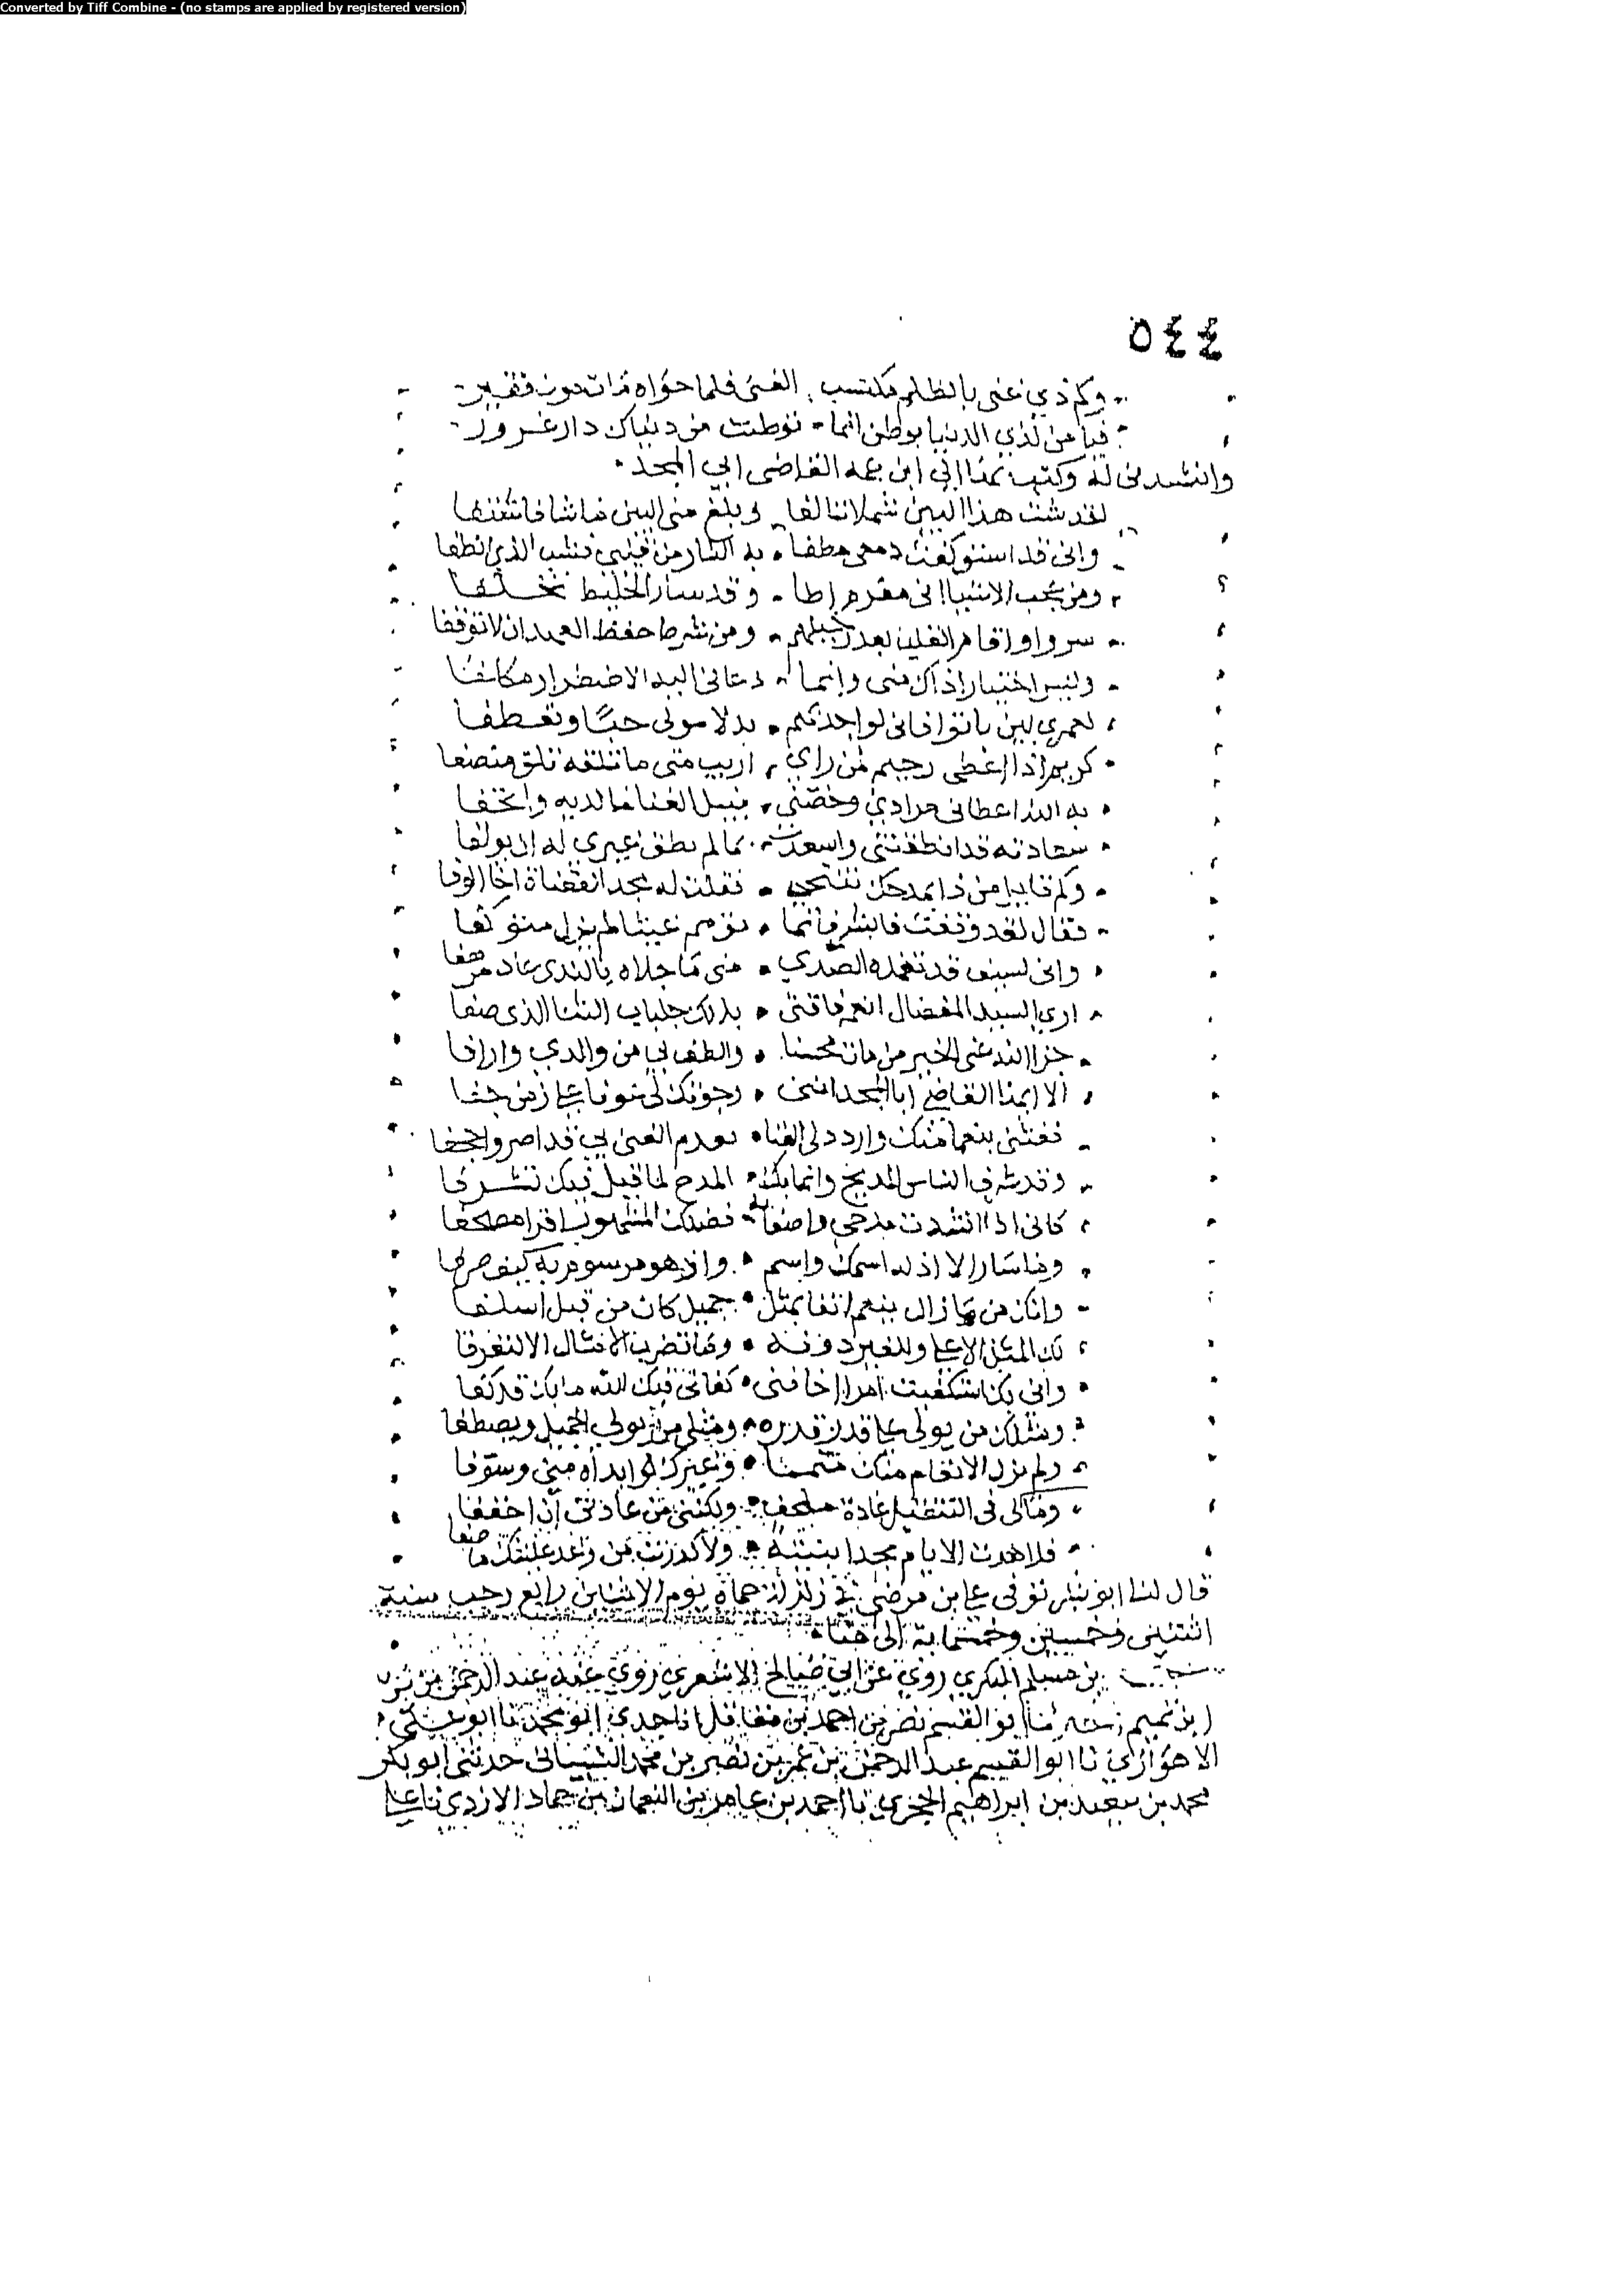 Converted by Tiff Combine - (no stamps are applied by registered version)
٥٤٤
وكم ذي غنى بالظلم مكتسب الغنى فلما حواه مات دون فقير
فيا من لذي الدنيا يوطن انما توطنت من دنياك دار غرور
وانشدني له وكتب بها الى ابن عمه القاضي ابي المجد
لقد شت هذا البين شملا تالفا وبلغ مني البين ما شا فاتلفا
واني قد استوكفت دمعي مطفا به النار من قلبي فشب الذي انطفا
ومن عجب الاشيا اني مغرم وقد سار الخليط تخلفا
سروا واقام القلب بعد رحيلهم ومن شرط حفظ العهد ان لا توقفا
وليس اختيارا ذاك مني وانما دعاني اليه الاضطرار مكلفا
لعمري لين بانوا فاني لواجد بدلا مولى حبا وتعطفا
كريم اذا اعطى رحيم لمن راي اريب متى ما تلقه تلق منصفا
به الله اعطاني مرادي وخصني بنيل الغنا مما لديه واتحفا
سعادته قد انطقتني واسعدت بما لم يطق غيري له ان يولفا
وكم قايل من ذا بمدحك تنتحي فقلت له مجد القضاة اخا الوفا
فقال لقد وفقت فابشر فانما تؤمم غيثا لم يزل متوكفا
واني لسيف قد تغمده الصدي متى ما جلاه بالندى عاد مرهفا
اري السيد المفضال انعم فاقتني بذلك جلباب الثنا الذي صفا
جزا الله عني الخير من مات محسنا والطف بي من والدي وارافا
الا ايهذا القاضي ابا المجد انني رجوتك لي عونا على زمن جفا
فغثني بنعما منك واردد لي الغنا فعدم الغنى بي قد اضر واجحفا
وقد في الناس المديح وانما بك المدح لما قيل فيك تشرفا
كاني اذا انشدت مدحي واصفا فضلك المشهور اقرا مصحفا
وما سار الا اذ له اسمك واسم واذ هو مرسوم به كيف صرفا
وانك من ما زال ينعم انفا بمثل جميل كان من قبل اسلفا
لك المثل الاعلى وللغير دونه وما تضرب الامثال الا لتعرفا
واني بك استكفيت امرا اخافني كفاني فيك الله ما بك قد كفا
ومثلك من يولي على قدر قدره ومثلي من يولي الجميل ويصطفا
ولم يزل الانعام منك متمما وغيرك لو ابداه منى وسوفا
ومالي في التثقيل عادة ملحف ولكنني من عادتي ان اخففا
فلا هدت الايام مجدا بنيته ولا كدرت من رغد عيشك ما صفا
قال لنا ابو نير توفى علي بن مرضي في زلزلة حماة يوم الاثنين رابع رجب سنة
اثنتين وخمسين وخمسماية الى هنا
بن مسلم البكري روي عن ابي صالح الاشعري روي عنه عبد الرحمن بن يزيد
ابن تميم ابو القسم نصر بن احمد بن مقاتل انا جدي ابو محمد نا ابو علي
الاهوازي نا ابو القسم عبد الرحمن بن عمر بن نصر بن محمد الشيباني حدثني ابو بكر
محمد بن سعيد بن ابراهيم نا احمد بن عامر بن النعمان بن حماد الازدي نا علي